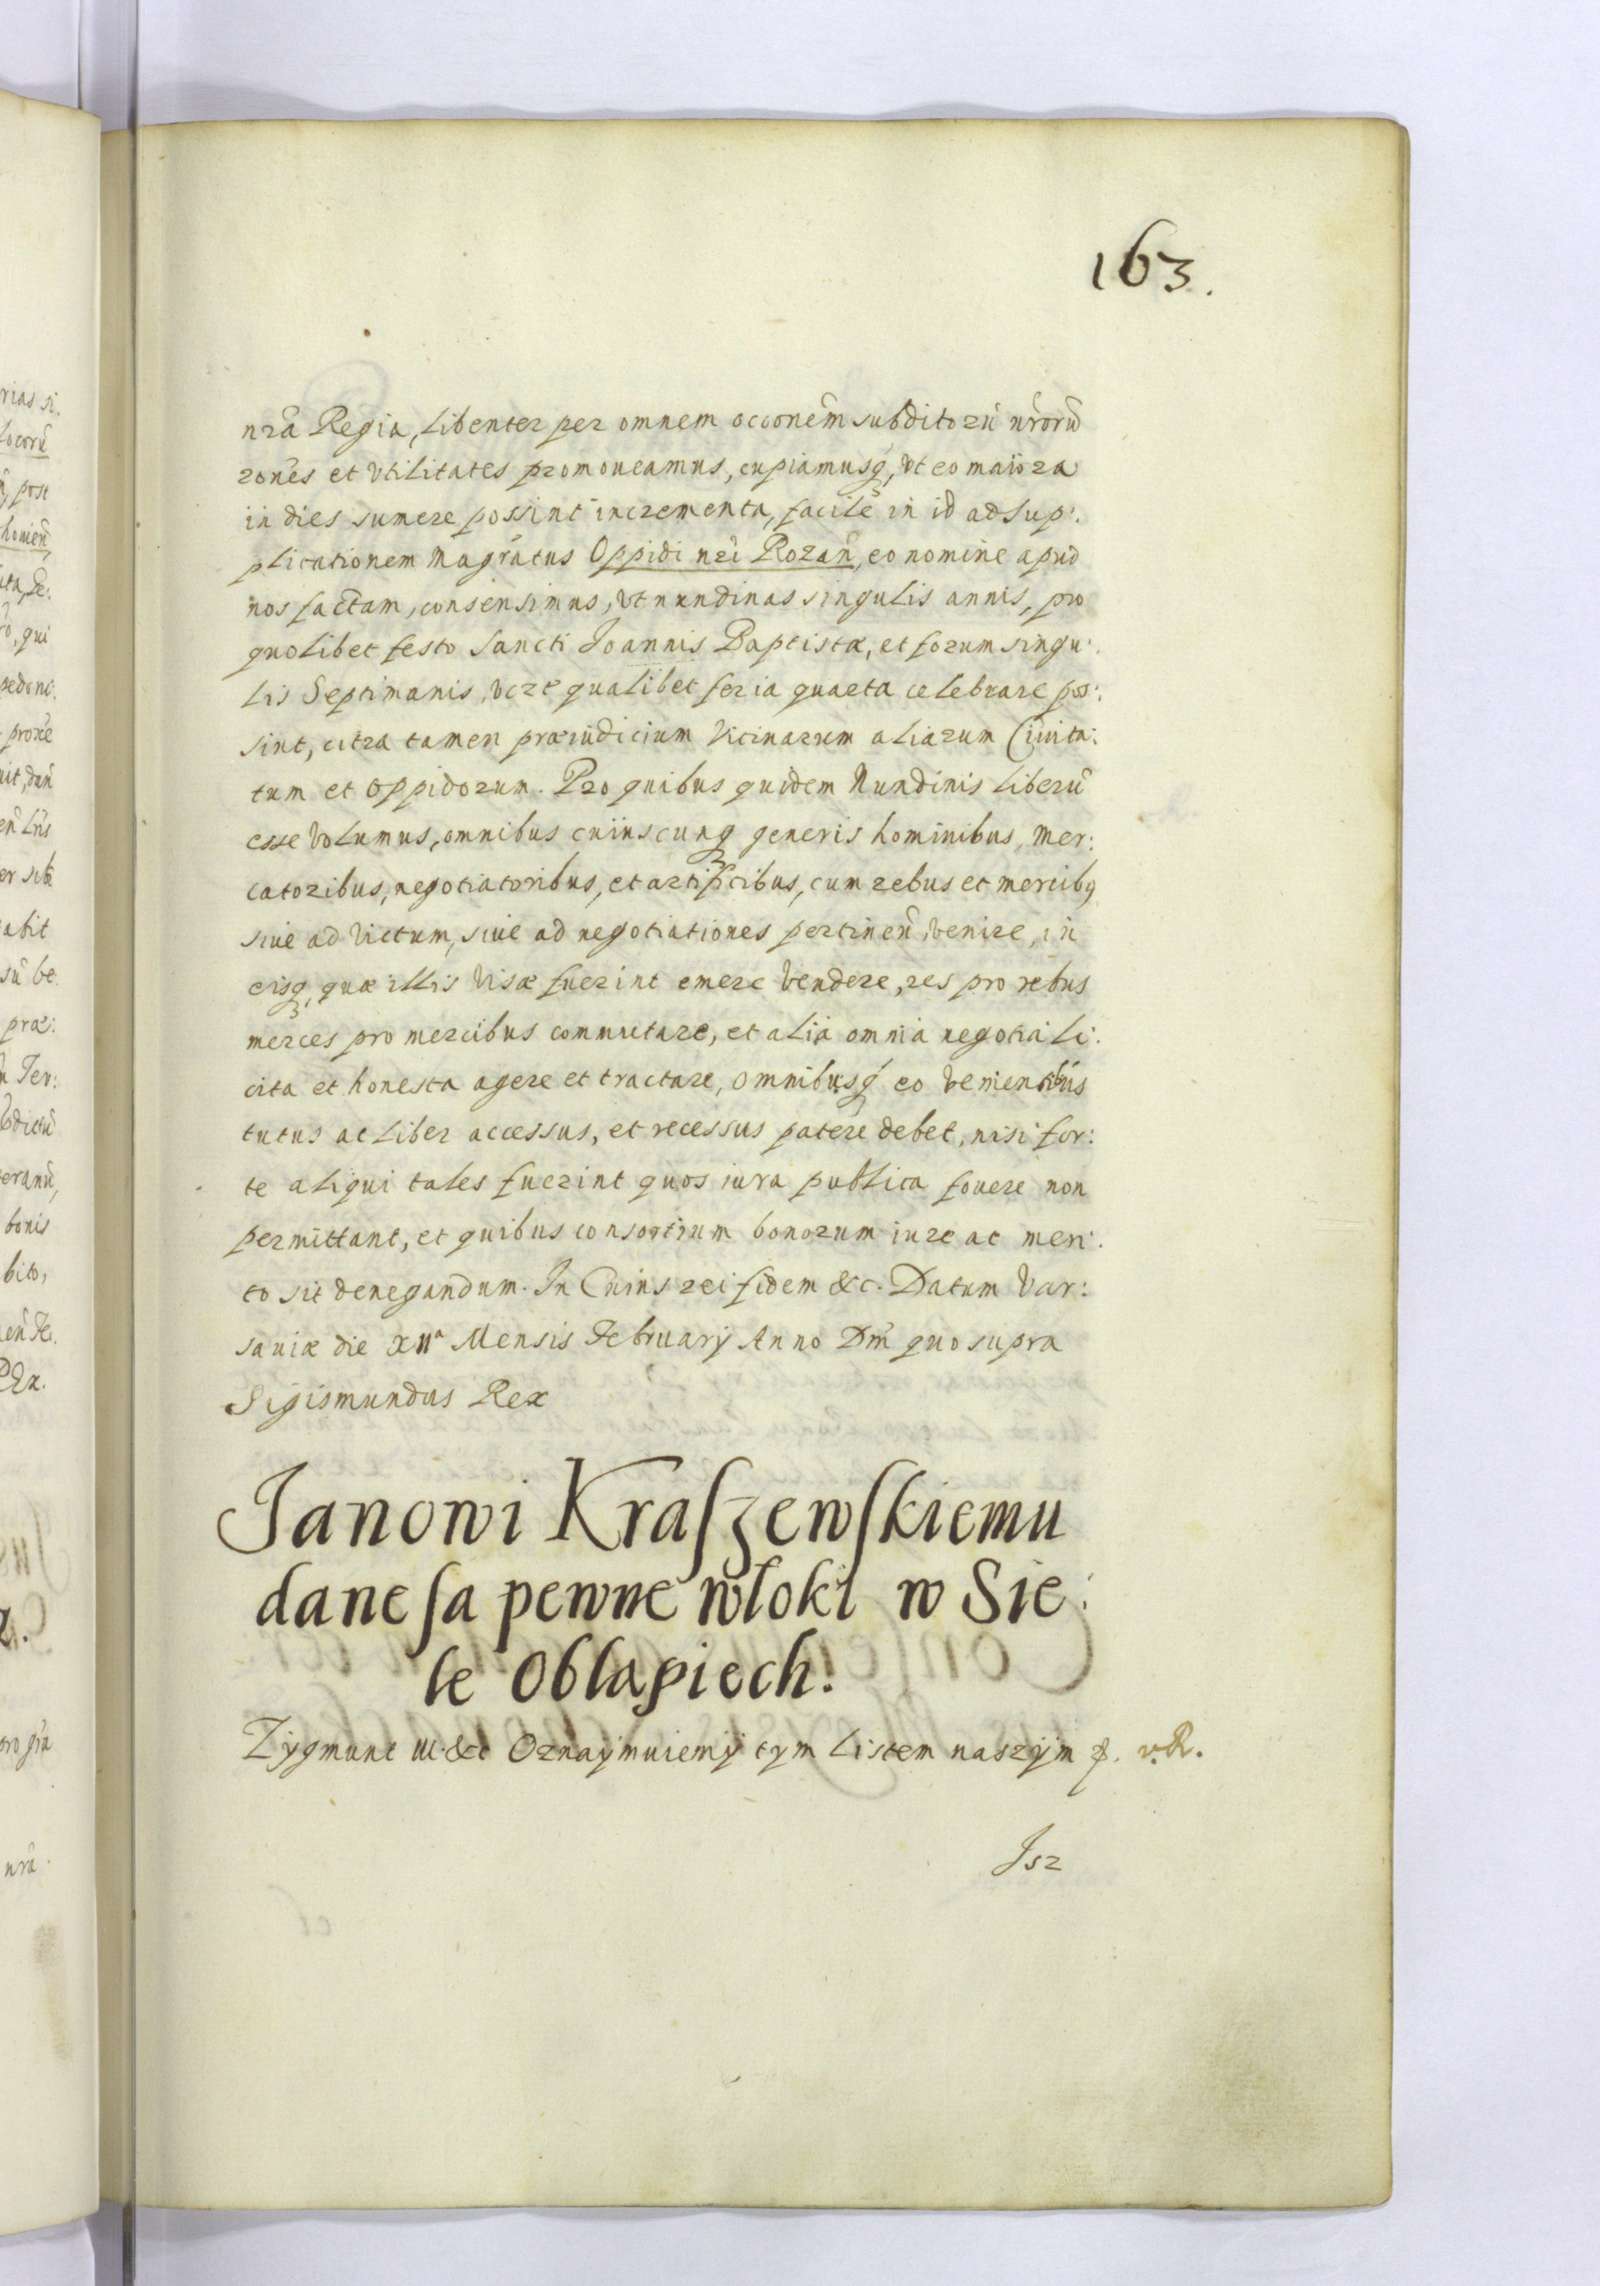 163.
nr̃a Regia, libenter per omnem occonẽm subditorũ nr̃orũ
ronẽs et vtilitates promoueamus, cupiamusq́, vt eo maiora
in dies sumere possint incrementa, facilè in id ad sup:
plicationem Magr̃atus Oppidi nr̃i Rozañ, eo nomine apud
nos factam, consensimus, vt nundinas singulis annis, pro
quolibet festo Sancti Joannis Baptistæ, et forum singu:
lis Septimanis, vz̃t qualibet feria quarta celebrare pos:
sint, citra tamen præiudicium Vicinarum aliarum Ciuita:
tum et Oppidorum. Pro quibus quidem Nundinis liberũ
esse Volumus, omnibus cuiuscunq generis hominibus, Mer:
catoribus, negotiatoribus, et artificibus, cum rebus et mercibq
siue ad Victum, siue ad negotiationes pertineñ, venire, in
eisq, quæ illis Visæ fuerint emere Vendere, res pro rebus
merces pro mercibus commutare, et alia omnia negotia li:
cita et honesta agere et tractare, omnibusq́ eo Venientibus
tutus ac liber accessus, et recessus patere debet, nisi for:
te aliqui tales fuerint quos iura publica fouere non
permittant, et quibus consortium bonorum iure ac meri:
to sit denegandum. In Cuius rei fidem &c. Datum Var:
sauiæ die XIIa Mensis Februarÿ Anno Dm̃ quo supra
Sigismundus Rex
Janowi Kraſzewſkiemu
dane ſa pewne wloki w Sie:
le Oblapiech.
Zygmunt III. &c Oznaÿmuiemÿ tym Listem naszÿm p. v. R.
Jsz